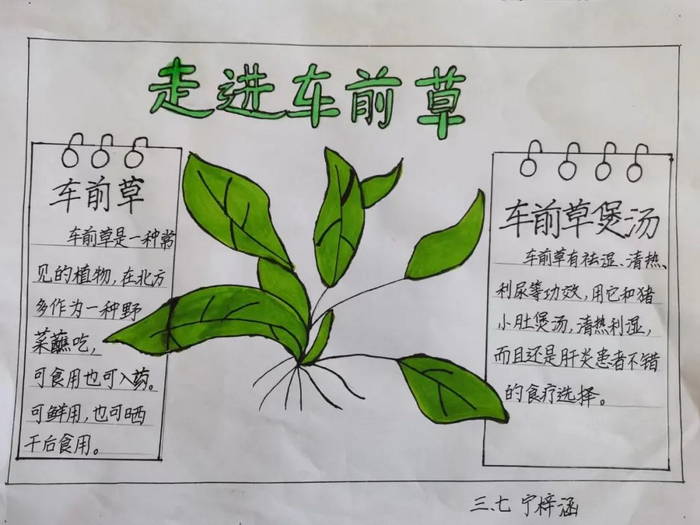 走进车前草
车前草
车前草是一种常
见的植物,在北方
多作为一种野
菜蘸吃,
可食用也可入药。
可鲜用,也可晒
干后食用。
车前草煲汤
车前草有祛湿、清热、
利尿等功效,用它和猪
小肚煲汤,清热利湿,
而且还是肝炎患者不错
的食疗选择。
三、七 宁梓涵